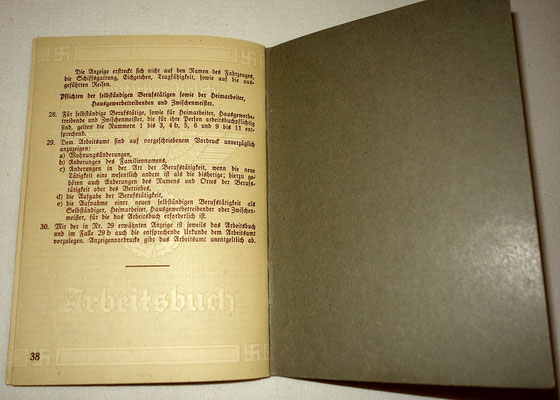 Die Anzeige erstreckt sich nicht auf den Namen des Fahrzeuges,
die Schiffsgattung, Eichzeichen, Tragfähigkeit, sowie auf die aus-
geführten Reisen.
Pflichten der selbständigen Berufstätigen sowie der Heimarbeiter,
Hausgewerbetreibenden und Zwischenmeister.
28. Für selbständige Berufstätige, sowie für Heimarbeiter, Hausgewerbe-
treibende und Zwischenmeister, die für ihre Person arbeitsbuchpflichtig
sind, gelten die Nummern 1 bis 3, 4 b, 5, 6 und 9 bis 11 ent-
sprechend.
29. Dem Arbeitsamt sind auf vorgeschriebenem Vordruck unverzüglich
anzuzeigen:
a) Wohnungsänderungen,
b) Änderungen des Familiennamens,
c) Änderungen in der Art der Berufstätigkeit, wenn die neue
Tätigkeit eine wesentlich andere ist als die bisherige; hierzu ge-
hören auch Änderungen des Namens und Ortes der Berufs-
tätigkeit oder des Betriebes,
d) die Aufgabe der Berufstätigkeit,
e) die Aufnahme einer neuen selbständigen Berufstätigkeit als
Selbständiger, Heimarbeiter, Hausgewerbetreibender oder Zwischen-
meister, für die das Arbeitsbuch erforderlich ist.
30. Mit der in Nr. 29 erwähnten Anzeige ist jeweils das Arbeitsbuch
und im Falle 29 b auch die entsprechende Urkunde dem Arbeitsamt
vorzulegen. Anzeigenvordrucke gibt das Arbeitsamt unentgeltlich ab.
Arbeitsbuch
38